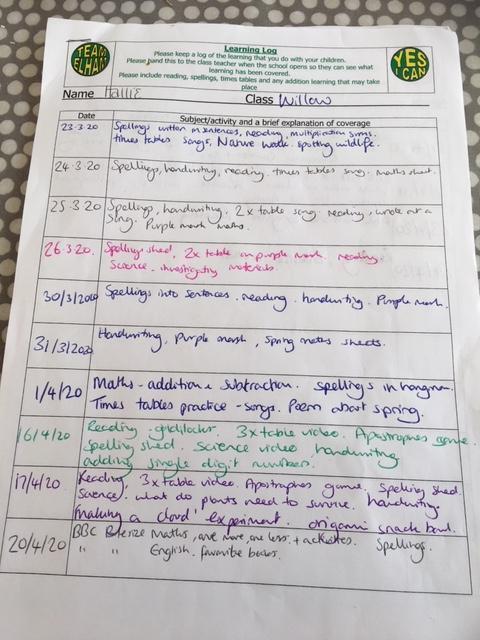 TEAM
ELHAM
Learning Log
Please keep a log of the learning that you do with your children.
Please hand this to the class teacher when the school opens so they can see what
learning has been covered.
Please include reading, spellings, times tables and any addition learning that may take
place
YES
I CAN
Name Hallie Class Willow
Date Subject/activity and a brief explanation of coverage
23.3.20 Spellings written in sentences, reading, multiplication sums.
times tables songs, Nature walk. spotting wildlife.
24.3.20 Spellings, handwriting, reading, times tables song. maths sheet.
25.3.20 Spellings, handwriting, 2x table song. reading, wrote out a
song. Purple mash maths.
26.3.20. Spelling shed, 2x table on purple mash. reading
Science. investigating materials.
30/3/2020 Spellings into sentences. reading. handwriting. Purple mash.
31/3/2020 Handwriting, Purple mash, Spring maths sheets.
1/4/20 Maths - addition & subtraction. Spellings in hangman.
Times tables practice - songs. Poem about spring.
16/4/20 Reading - goldilocks. 3x table video. Apostrophes game.
Spelling shed. Science video. handwriting
adding single digit numbers.
17/4/20. Reading, 3x table video. Apostrophes game. Spelling shed.
Science. what do plants need to survive. handwriting
making a cloud experiment. origami snack bowl.
20/4/20 BBC Bitesize Maths, one more, one less. + activities. Spellings.
" " English. favourite books.